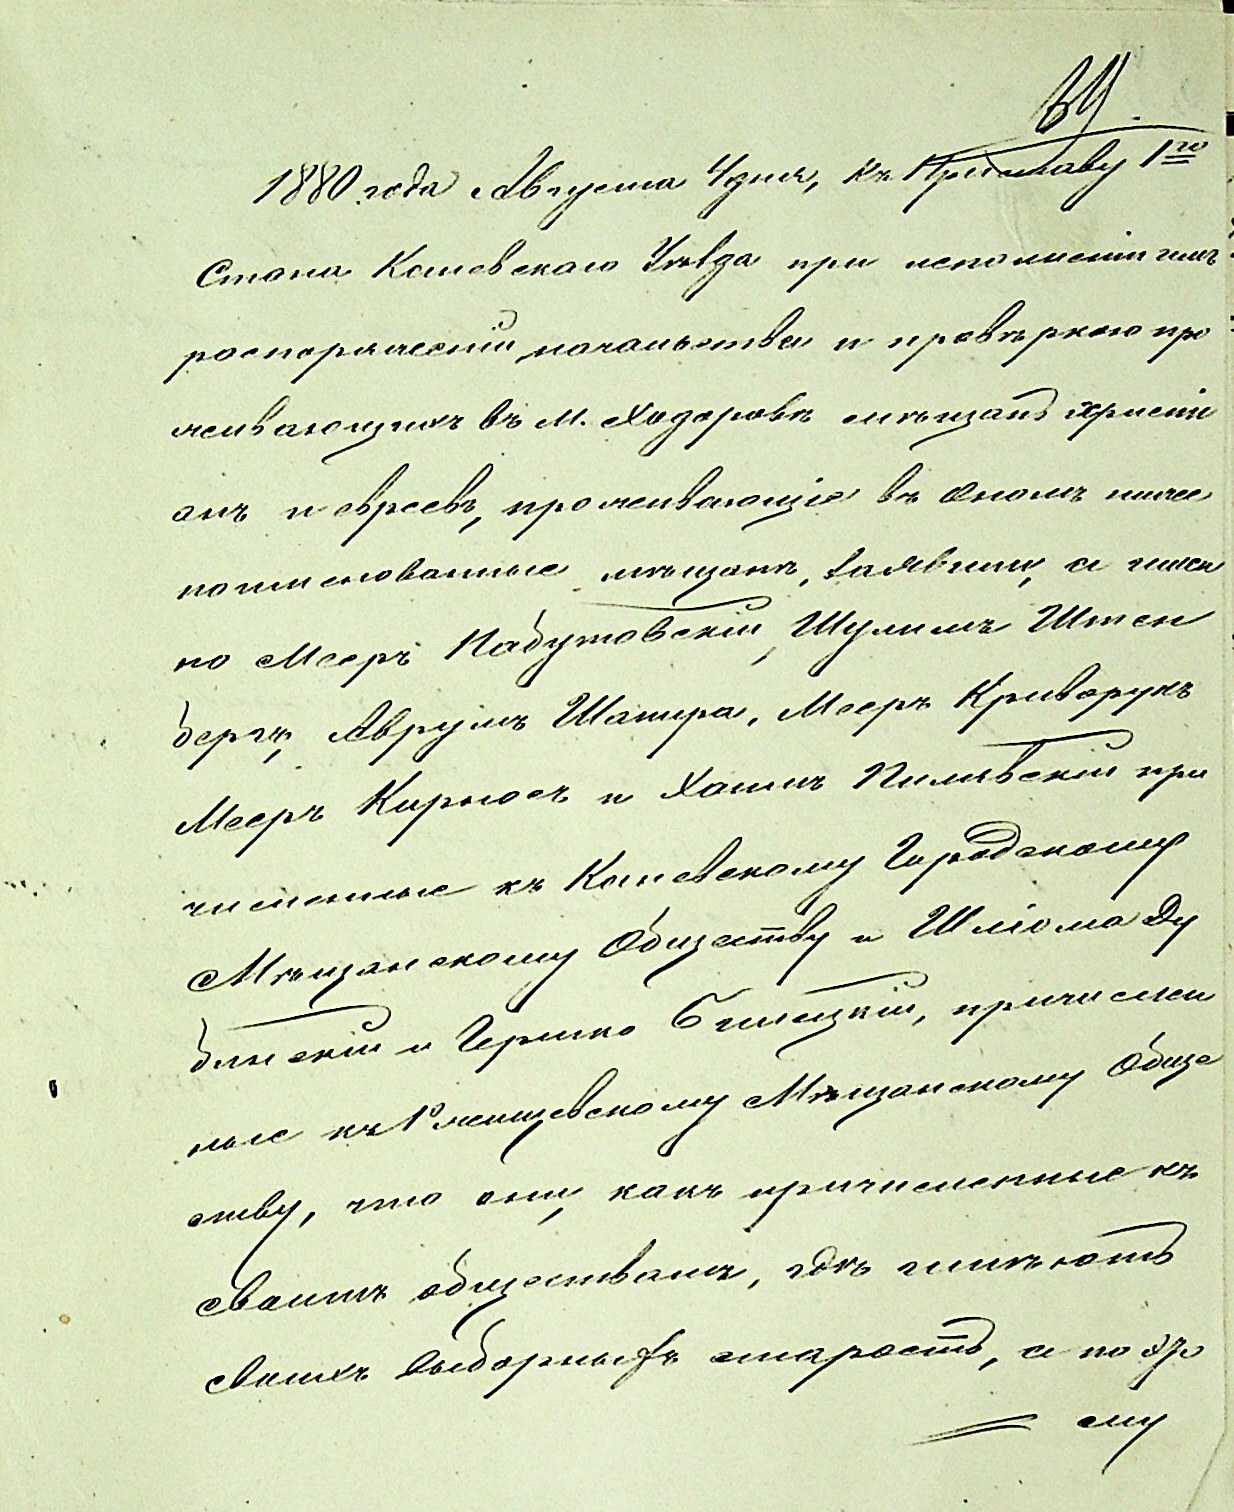 64.
1880 года Августа 4 дня, къ Приставу 1го
Стана Каневскаго Уѣзда при исполненіи имъ
распоряженій начальства и провѣркою про
живающихъ въ М. Ходоровѣ мѣщанъ христи
анъ и евреевъ, проживающіе въ ономъ ниже
поименованные мѣщане, заявили, а имен
но Мееръ Набутовскій, Шулимъ Штен
бергъ, Аврумъ Шапира, Мееръ Криворукъ
Мееръ Кирносъ и Хаимъ Пилявскій при
численные къ Каневскому Городскому
Мѣщанскому Обществу и Шлiома Ду
блинскій и Гершко Билецкій, причислен
ные къ Ржищевскому Мѣщанскому Обще
ству, что они, какъ причисленные къ
своимъ обществамъ, гдѣ имѣютъ
своихъ выборныхъ старостъ, а по это
му